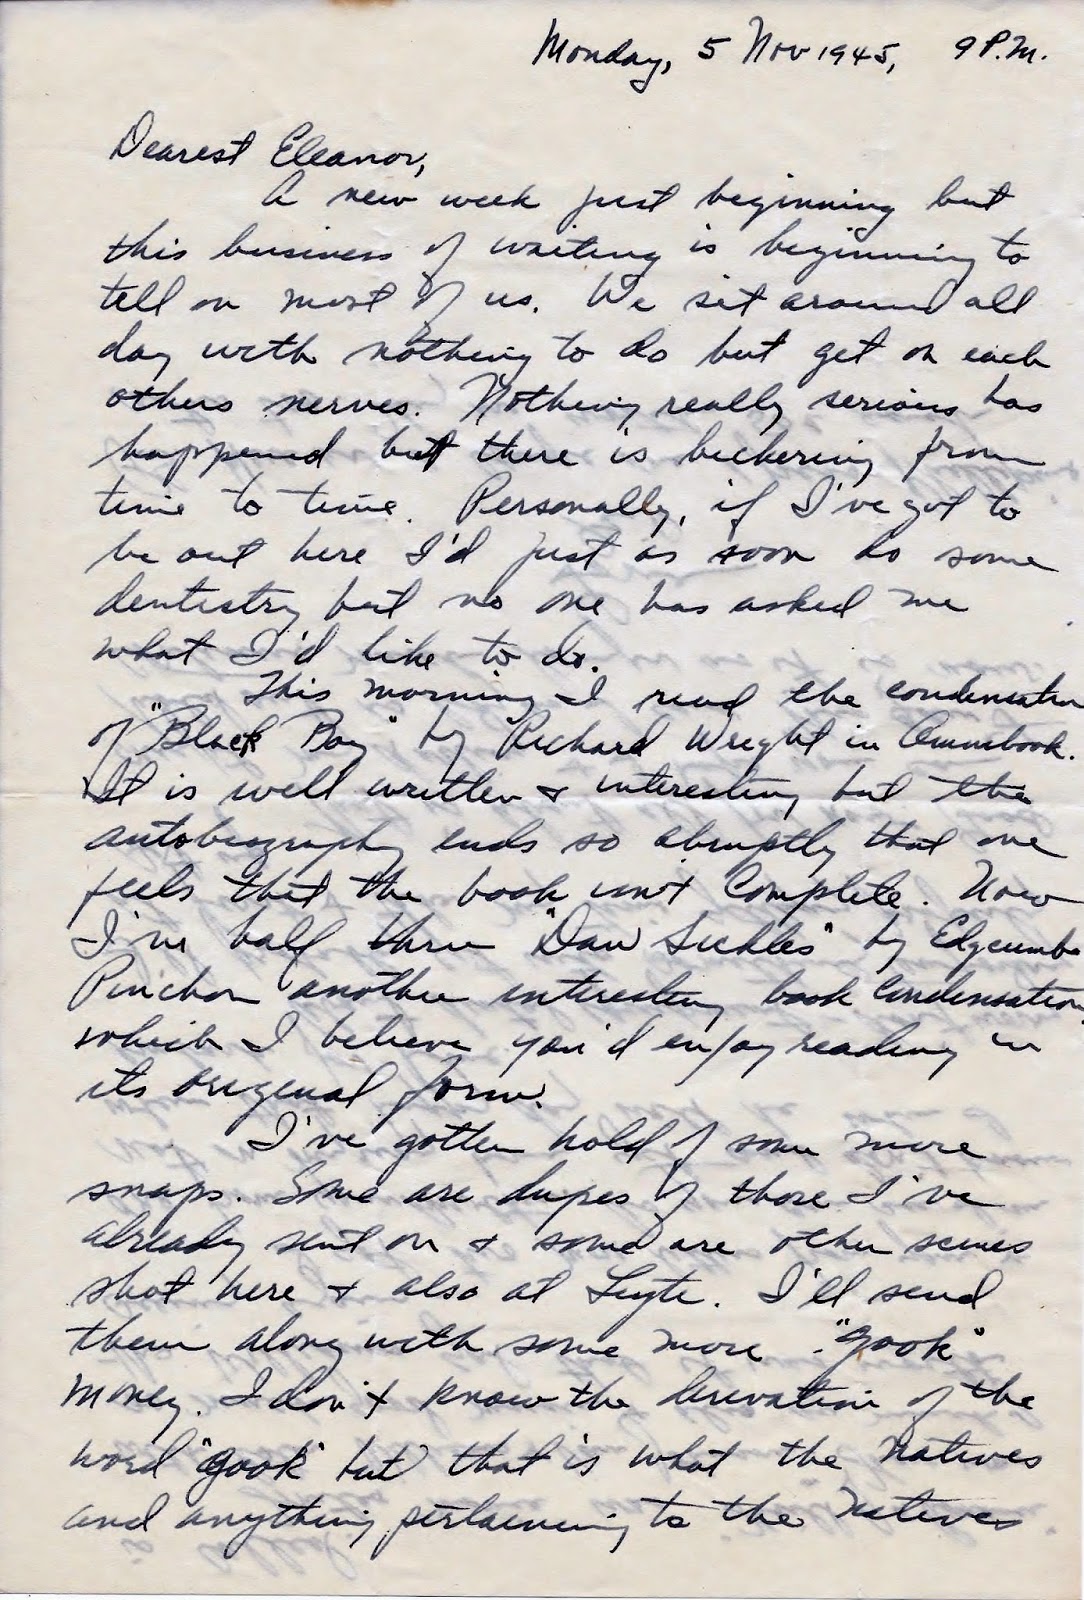 Monday, 5 Nov 1945, 9 P.M.
Dearest Eleanor,
A new week just beginning but
this business of waiting is beginning to
tell on most of us. We sit around all
day with nothing to do but get on each
others nerves. Nothing really serious has
happened but there is bickering from
time to time. Personally, if I've got to
be out here I'd just as soon do some
dentistry but no one has asked me
what I'd like to do.
This morning I read the condensation
of "Black Boy" by Richard Wright in Omnibook.
It is well written & interesting but the
autobiography ends so abruptly that one
feels that the book isn't complete. Now
I'm half thru "Dan Sickles" by Edgcumb
Pinchon another interesting book condensation
which I believe you'd enjoy reading in
its original form.
I've gotten hold of some more
snaps. Some are dupes of those I've
already sent on & some are other scenes
shot here & also at Leyte. I'll send
them along with some more "gook"
money. I don't know the derivation of the
word "gook" but that is what the natives
and anything pertaining to the natives